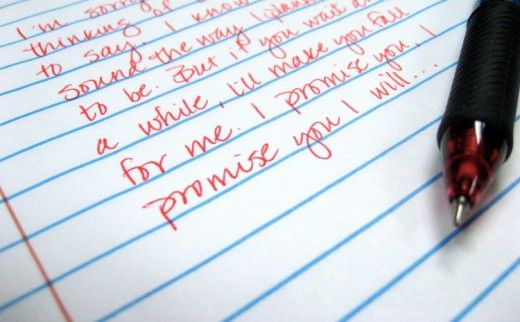 I'm sorry
thinking of
to say. I know
sound the way I planned
to be. But if you wait a
a while, I'll make you fall
for me. I promise you, I
promise you I will...